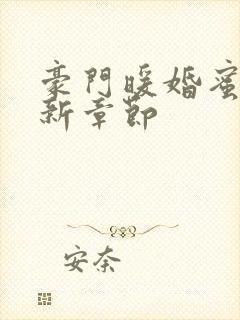 豪門暖婚蜜
新章節
安奈